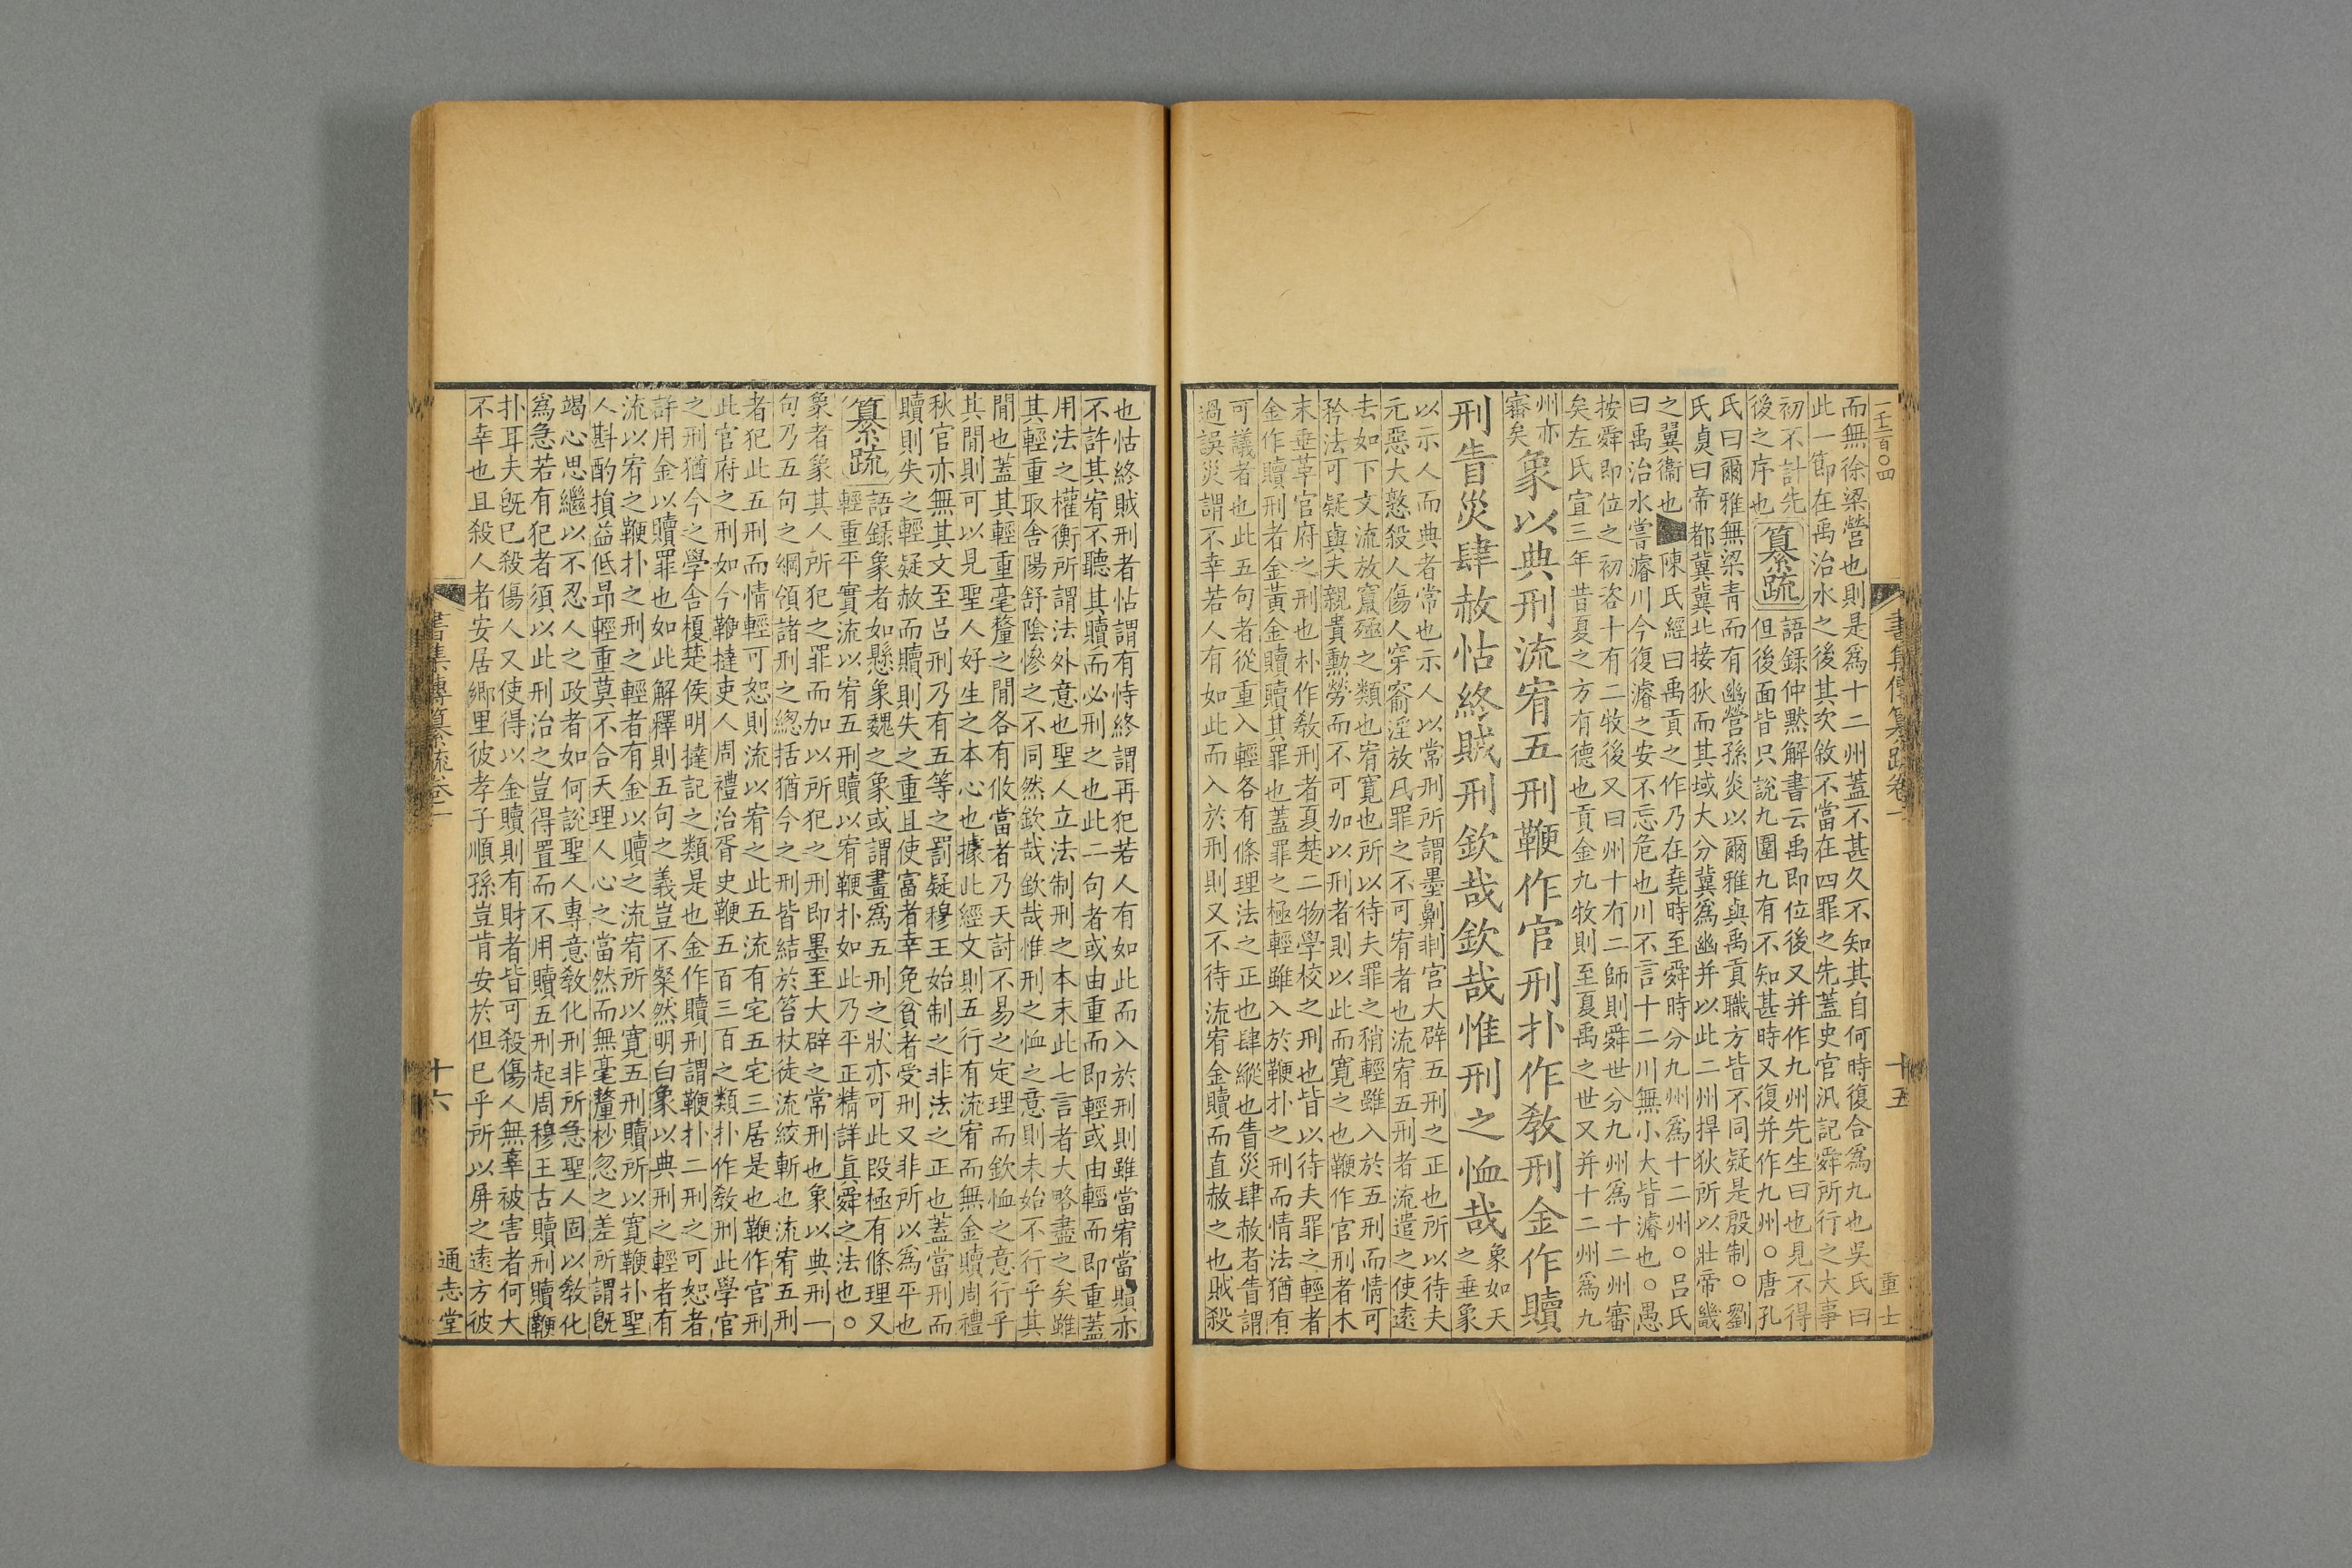 一千二百〇四
而無徐梁營也則是爲十二州蓋不甚久不知其自何時復合爲九也吳氏曰
此一節在禹治水之後其次敘不當在四罪之先蓋史官汎記舜所行之大事
初不計先後之序也
纂疏
語錄仲黙解書云禹即位後又并作九州先生曰也見不得
但後面皆只說九圍九有不知甚時又復并作九州○唐孔
氏曰爾雅無梁青而有幽營孫炎以爾雅與禹貢職方皆不同疑是殷制○劉
氏貞曰帝都冀冀北接狄而其域大分冀爲幽并以此二州捍狄所以壯帝畿
之翼衞也
陳氏經曰禹貢之作乃在堯時至舜時分九州爲十二州○呂氏
曰禹治水嘗濬川今復濬之安不忘危也川不言十二川無小大皆濬也○愚
按舜即位之初咨十有二牧後又曰州十有二師則舜世分九州爲十二州審
矣左氏宣三年昔夏之方有德也貢金九牧則至夏禹之世又并十二州爲九
州亦審矣
象以典刑流宥五刑鞭作官刑扑作教刑金作贖
刑眚災肆赦怙終賊刑欽哉欽哉惟刑之恤哉
象如天之垂象
以示人而典者常也示人以常刑所謂墨劓剕宮大辟五刑之正也所以待夫
元惡大憝殺人傷人穿窬淫放凡罪之不可宥者也流宥五刑者流遣之使遠
去如下文流放竄殛之類也宥寛也所以待夫罪之稍輕雖入於五刑而情可
矜法可疑與夫親貴勳勞而不可加以刑者則以此而寛之也鞭作官刑者木
末垂革官府之刑也朴作敎刑者夏楚二物學校之刑也皆以待夫罪之輕者
金作贖刑者金黃金贖贖其罪也蓋罪之極輕雖入於鞭扑之刑而情法猶有
可議者也此五句者從重入輕各有條理法之正也肆縱也眚災肆赦者眚謂
過誤災謂不幸若人有如此而入於刑則又不待流宥金贖而直赦之也賊殺
書集傳纂疏卷一
十五
重士
也怙終賊刑者怙謂有恃終謂再犯若人有如此而入於刑則雖當宥當贖亦
不許其宥不聽其贖而必刑之也此二句者或由重而即輕或由輕而即重蓋
用法之權衡所謂法外意也聖人立法制刑之本末此七言者大略盡之矣雖
其輕重取舍陽舒陰慘之不同然欽哉欽哉惟刑之恤之意則未始不行乎其
閒也蓋其輕重毫釐之閒各有攸當者乃天討不易之定理而欽恤之意行乎
其閒則可以見聖人好生之本心也據此經文則五行有流宥而無金贖周禮
秋官亦無其文至呂刑乃有五等之罰疑穆王始制之非法之正也蓋當刑而
贖則失之輕疑赦而贖則失之重且使富者幸免貧者受刑又非所以爲平也
纂疏
語錄象者如懸象魏之象或謂畫爲五刑之狀亦可此段極有條理又
輕重平實流以宥五刑贖以宥鞭扑如此乃平正精詳眞舜之法也○
象者象其人所犯之罪而加以所犯之刑即墨至大辟之常刑也象以典刑一
句乃五句之綱領諸刑之總括猶今之刑皆結於笞杖徒流絞斬也流宥五刑
者犯此五刑而情輕可恕則流以宥之此五流有宅五宅三居是也鞭作官刑
此官府之刑如今鞭撻吏人周禮治胥史鞭五百三百之類扑作敎刑此學官
之刑猶今之學舍榎楚侯明撻記之類是也金作贖刑謂鞭扑二刑之可恕者
許用金以贖罪也如此解釋則五句之義豈不粲然明白象以典刑之輕者有
流以宥之鞭扑之刑之輕者有金以贖之流宥所以寛五刑贖所以寛鞭扑聖
人斟酌損益低昻輕重莫不合天理人心之當然而無毫釐杪忽之差所謂旣
竭心思繼以不忍人之政者如何說聖人專意敎化刑非所急聖人固以敎化
爲急若有犯者須以此刑治之豈得置而不用贖五刑起周穆王古贖刑贖鞭
扑耳夫旣已殺傷人又使得以金贖則有財者皆可殺傷人無辜被害者何大
不幸也且殺人者安居鄉里彼孝子順孫豈肯安於但已乎所以屏之遠方彼
書集傳纂疏卷一
十六
通志堂